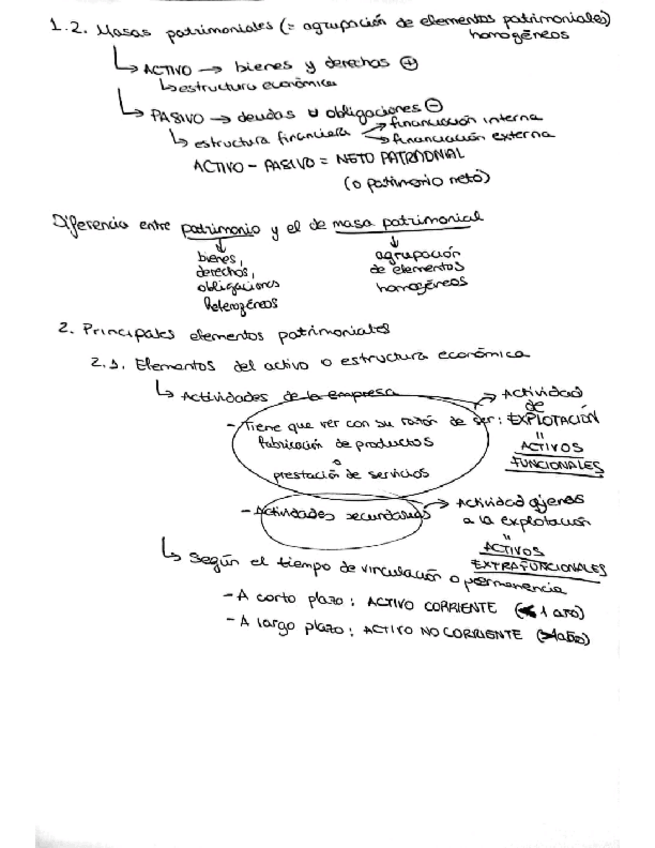 1.2. Masas patrimoniales (= agrupación de elementos patrimoniales)
homogéneos
↳ ACTIVO → bienes y derechos ⊕
↳ estructura económica
↳ PASIVO → deudas u obligaciones ⊖
↳ estructura financiera → financiación interna
→ financiación externa
ACTIVO - PASIVO = NETO PATRIMONIAL
(o patrimonio neto)
Diferencia entre patrimonio y el de masa patrimonial
↓ bienes,
derechos,
obligaciones
Heterogéneos
↓ agrupación
de elementos
homogéneos
2. Principales elementos patrimoniales
2.1. Elementos del activo o estructura económica
↳ Actividades de la empresa
- Tiene que ver con su razón de ser:
fabricación de productos
o
prestación de servicios
→ Actividad
de
EXPLOTACIÓN
=
ACTIVOS
FUNCIONALES
- Actividades secundarias
→ Actividad ajenas
a la explotación
=
ACTIVOS
EXTRAFUNCIONALES
↳ Según el tiempo de vinculación o permanencia
- A corto plazo: ACTIVO CORRIENTE (< 1 año)
- A largo plazo: ACTIVO NO CORRIENTE (>1año)